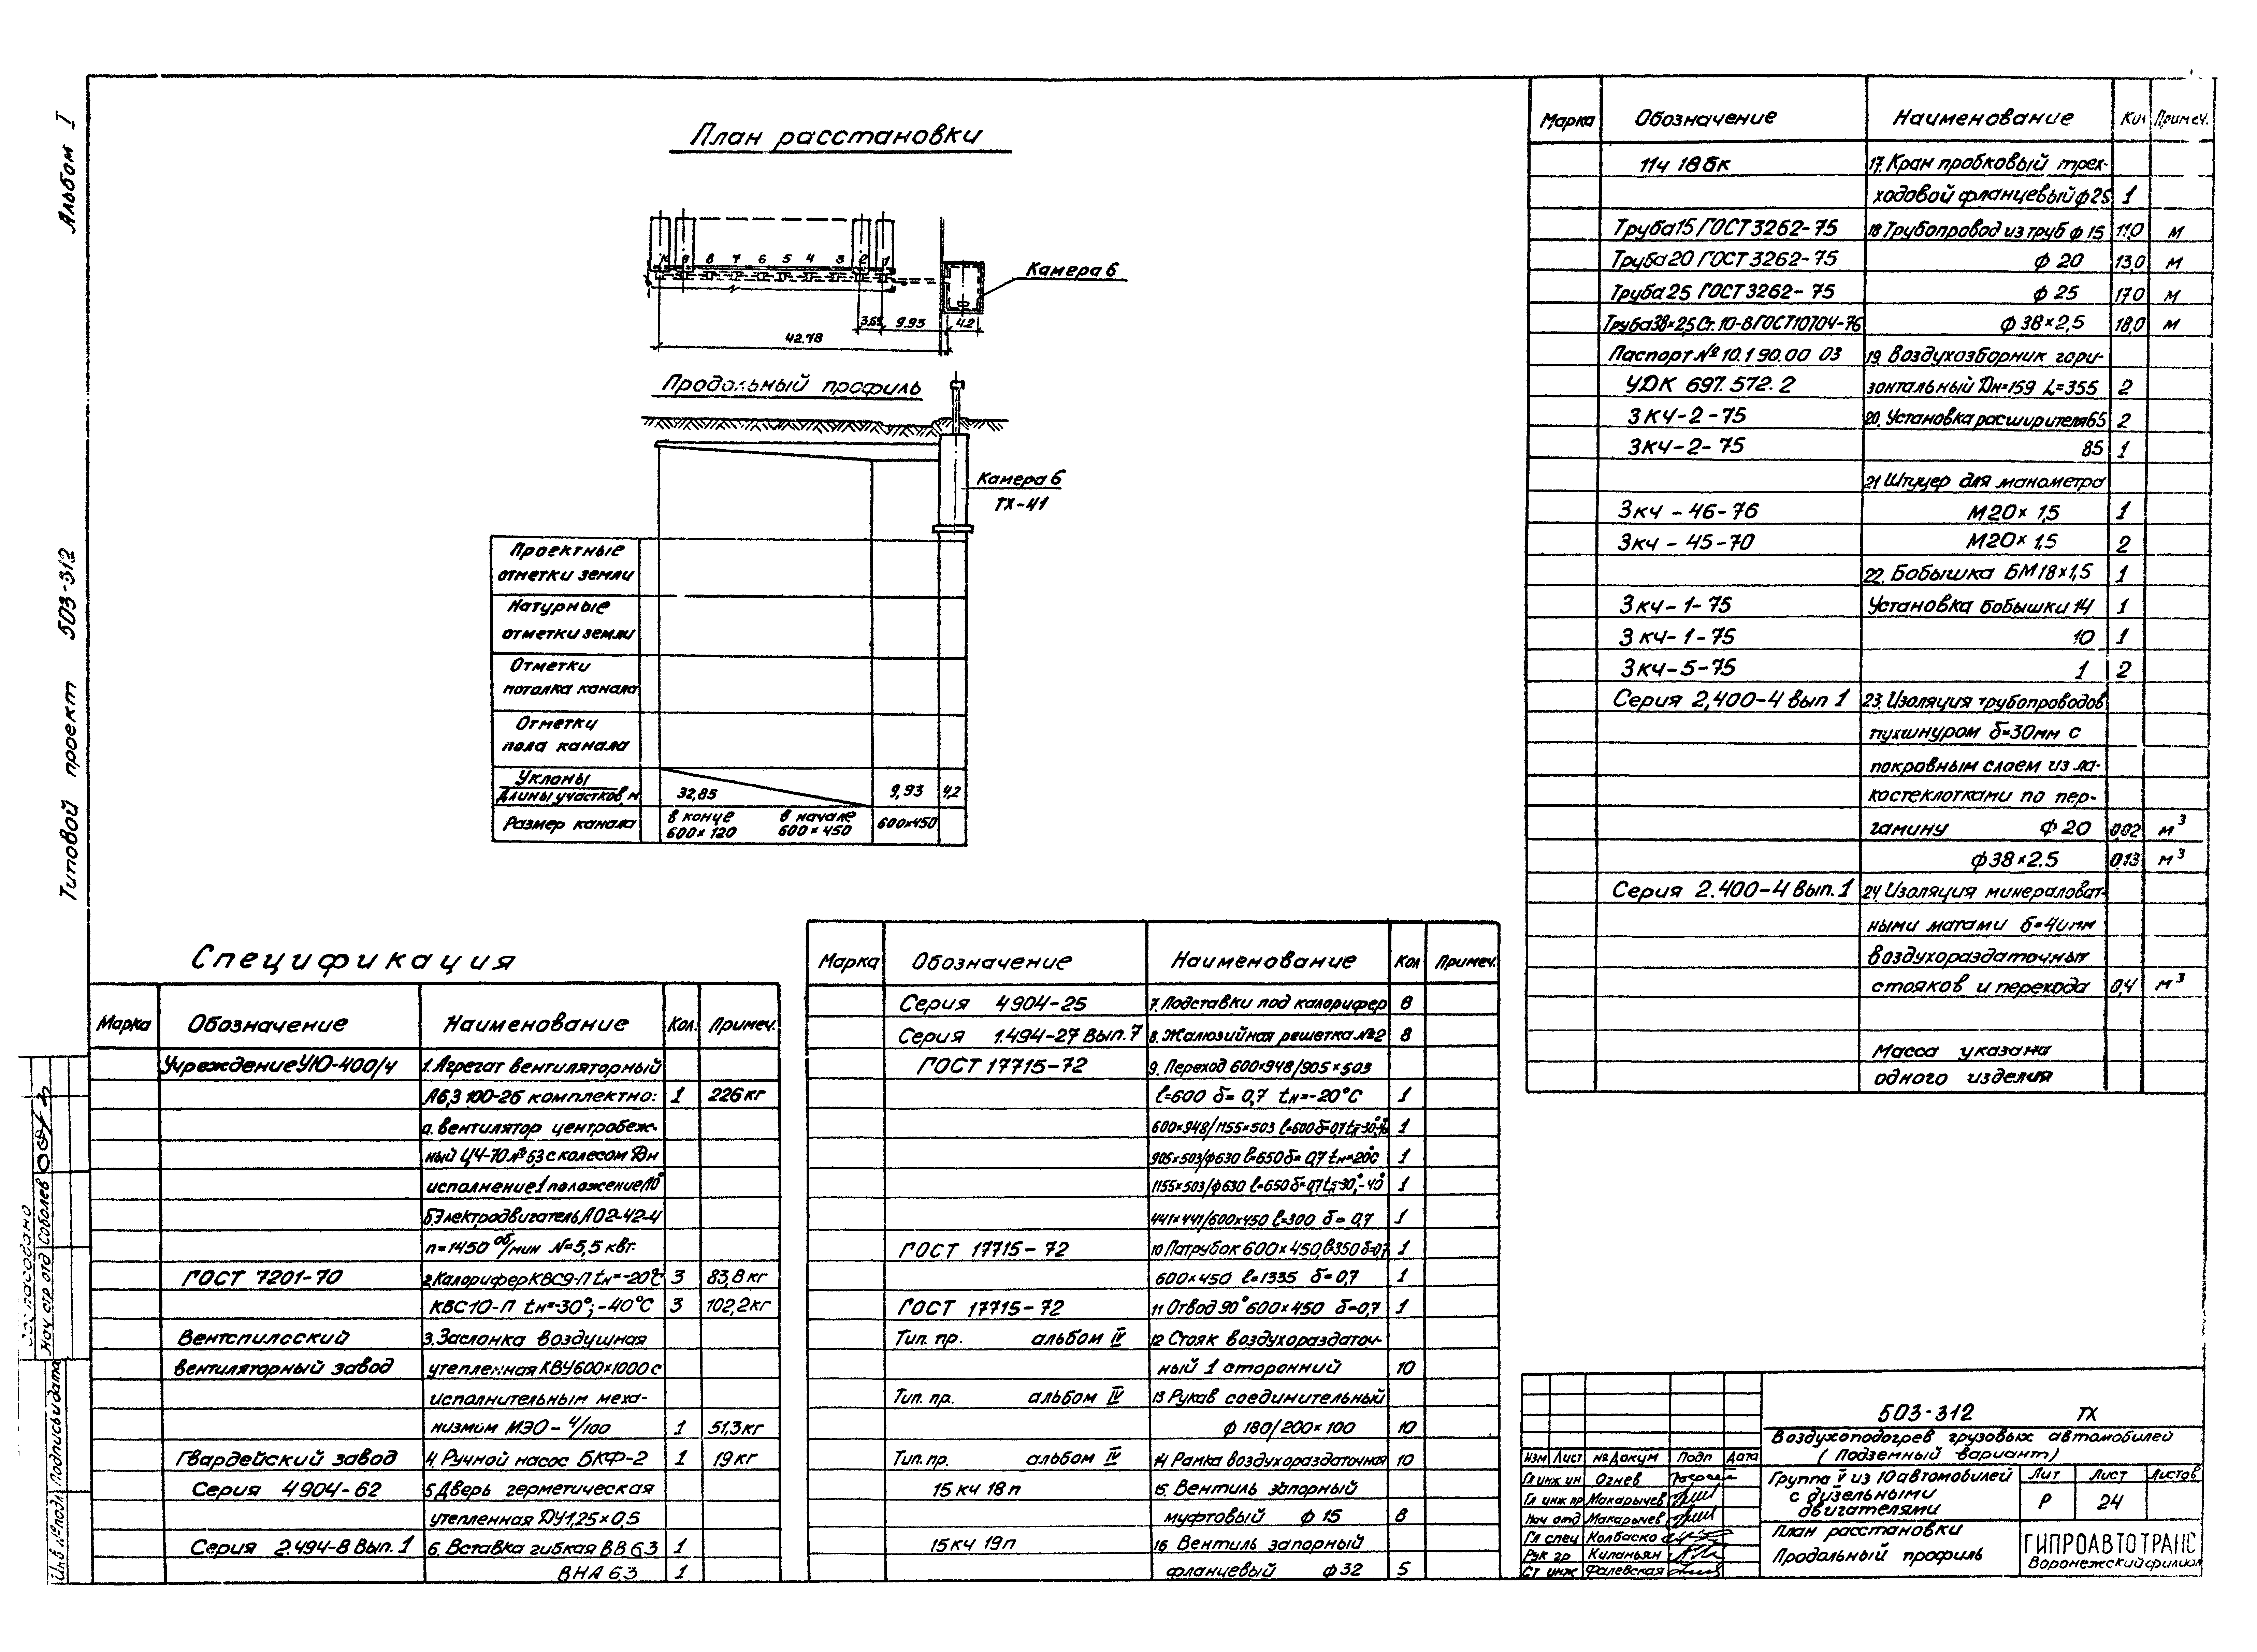 Альбом I
Типовой проект 503-312
План расстановки
10 9 8 7 6 5 4 3 2 1
Камера 6
3.65 9.93 4.2
42.78
Продольный профиль
Камера 6
ТХ-41
Проектные
отметки земли
Натурные
отметки земли
Отметки
потолка канала
Отметки
пола канала
Уклоны
Длины участков, м 32,85 9,93 4,2
Размер канала в конце 600×120 в начале 600×450 600×450
Спецификация
Марка Обозначение Наименование Кол. Примеч.
Учреждение УЮ-400/4 1. Агрегат вентиляторный
А6,3 100-2б комплектно: 1 226 кг
а. вентилятор центробеж-
ный Ц4-70 №6,3 с колесом Дн
исполнение 1 положение Л0°
б. Электродвигатель АО2-42-4
n=1450 об/мин N=5,5 квт.
ГОСТ 7201-70 2. Калорифер КВС9-П tн=-20°С 3 83,8 кг
КВС10-П tн=-30°; -40°С 3 102,2 кг
Вентспилсский 3. Заслонка воздушная
вентиляторный завод утепленная КВУ600×1000 с
исполнительным меха-
низмом МЭО-4/100 1 51,3 кг
Гвардейский завод 4. Ручной насос БКФ-2 1 19 кг
Серия 4904-62 5. Дверь герметическая
утепленная ДУ1,25×0,5
Серия 2.494-8 Вып. 1 6. Вставка гибкая ВВ 6.3 1
ВНА 6.3 1
Марка Обозначение Наименование Кол Примеч.
Серия 4904-25 7. Подставки под калорифер 8
Серия 1.494-27 Вып. 7 8. Жалюзийная решетка №2 8
ГОСТ 17715-72 9. Переход 600×948/905×503
ℓ=600 δ=0,7 tн=-20°С 1
600×948/1155×503 ℓ=600 δ=0,7 tн=-30°,-40° 1
905×503/ф630 ℓ=650 δ=0,7 tн=20°С 1
1155×503/ф630 ℓ=650 δ=0,7 tн=30°,-40° 1
441×441/600×450 ℓ=300 δ=0,7 1
ГОСТ 17715-72 10 Патрубок 600×450, ℓ=350 δ=0,7 1
600×450 ℓ=1335 δ=0,7 1
ГОСТ 17715-72 11 Отвод 90° 600×450 δ=0,7 1
Тип. пр. альбом IV 12 Стояк воздухораздаточ-
ный 1 сторонний 10
Тип. пр. альбом IV 13 Рукав соединительный
ф 180/200×100 10
Тип. пр. альбом IV 14 Рамка воздухораздаточная 10
15 кч 18 п 15. Вентиль запорный
муфтовый ф 15 8
15 кч 19 п 16 Вентиль запорный
фланцевый ф 32 5
Марка Обозначение Наименование Кол Примеч.
11ч 18 бк 17. Кран пробковый трех-
ходовой фланцевый ф 25 1
Труба 15 ГОСТ 3262-75 18 Трубопровод из труб ф 15 11,0 м
Труба 20 ГОСТ 3262-75 ф 20 13,0 м
Труба 25 ГОСТ 3262-75 ф 25 17,0 м
Труба 38×2,5 Ст. 10-В ГОСТ 10704-76 ф 38×2,5 18,0 м
Паспорт № 10.1 90.00 03 19. Воздухозборник гори-
УДК 697. 572. 2 зонтальный Дн=159 L=355 2
3 КЧ-2-75 20. Установка расширителя 65 2
3КЧ-2-75 85 1
21 Штуцер для манометра
3кч-46-76 М20×1,5 1
3кч-45-70 М20×1,5 2
22. Бобышка БМ18×1,5 1
3кч-1-75 Установка бобышки 14 1
3 кч-1-75 10 1
3кч-5-75 1 2
Серия 2,400-4 вып 1 23. Изоляция трубопроводов
пухшнуром δ=30мм с
покровным слоем из ла-
костеклотками по пер-
гамину ф 20 0,02 м³
ф 38×2.5 0,13 м³
Серия 2.400-4 Вып. 1 24. Изоляция минераловат-
ными матами δ=40мм
воздухораздаточных
стояков и перехода 0,4 м³
Масса указана
одного изделия
503-312 ТХ
Воздухоподогрев грузовых автомобилей
(Подземный вариант)
Изм Лист № Докум Подп Дата
Гл инж ин Огнев
Гл инж пр Макарычев
Нач отд Макарычев
Гл спец Колбаско
Рук гр Киланьян
Ст инж Фалевская
Группа V из 10 автомобилей
с дизельными
двигателями
Лит Лист Листов
Р 24
План расстановки
Продольный профиль
ГИПРОАВТОТРАНС
Воронежский филиал
Согласовано
Нач стр отд Соболев
Инв № подл Подпись и дата